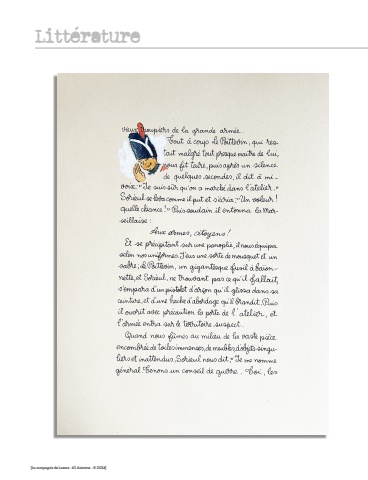 Littérature
vieux troupiers de la grande armée.
Tout à coup Le Poittevin, qui res-
tait malgré tout presque maître de lui,
nous fit taire, puis après un silence
de quelques secondes, il dit à mi-
voix: "Je suis sûr qu'on a marché dans l'atelier."
Sorieul se leva comme il put et s'écria: "Un voleur!
quelle chance!" Puis soudain il entonna la Mar-
seillaise:
Aux armes, citoyens!
Et se précipitant sur une panoplie, il nous équipa
selon nos uniformes. J'eus une sorte de mousquet et un
sabre; Le Poittevin, un gigantesque fusil à baïon-
nette, et Sorieul, ne trouvant pas ce qu'il fallait,
s'empara d'un pistolet d'arçon qu'il glissa dans sa
ceinture, et d'une hache d'abordage qu'il brandit. Puis
il ouvrit avec précaution la porte de l'atelier, et
l'armée entra sur le territoire suspect.
Quand nous fûmes au milieu de la vaste pièce
encombrée de toiles immenses, de meubles, d'objets singu-
liers et inattendus, Sorieul nous dit: "Je me nomme
général. Tenons un conseil de guerre. Toi, les